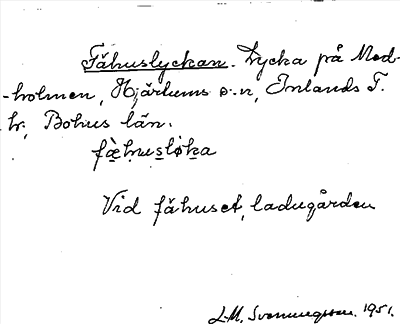 Fähuslyckan. Lycka på Med-
-holmen, Hjärtums s:n, Inlands T.
hr, Bohus län.
fæ̀huslɵka
Vid fähuset, ladugården
L.M. Svenungsson. 1951.